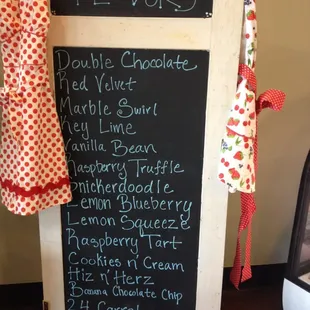 FLAVORS
Double Chocolate
Red Velvet
Marble Swirl
Key Lime
Vanilla Bean
Raspberry Truffle
Snickerdoodle
Lemon Blueberry
Lemon Squeeze
Raspberry Tart
Cookies n' Cream
Hiz n' Herz
Banana Chocolate Chip
24 Carrot